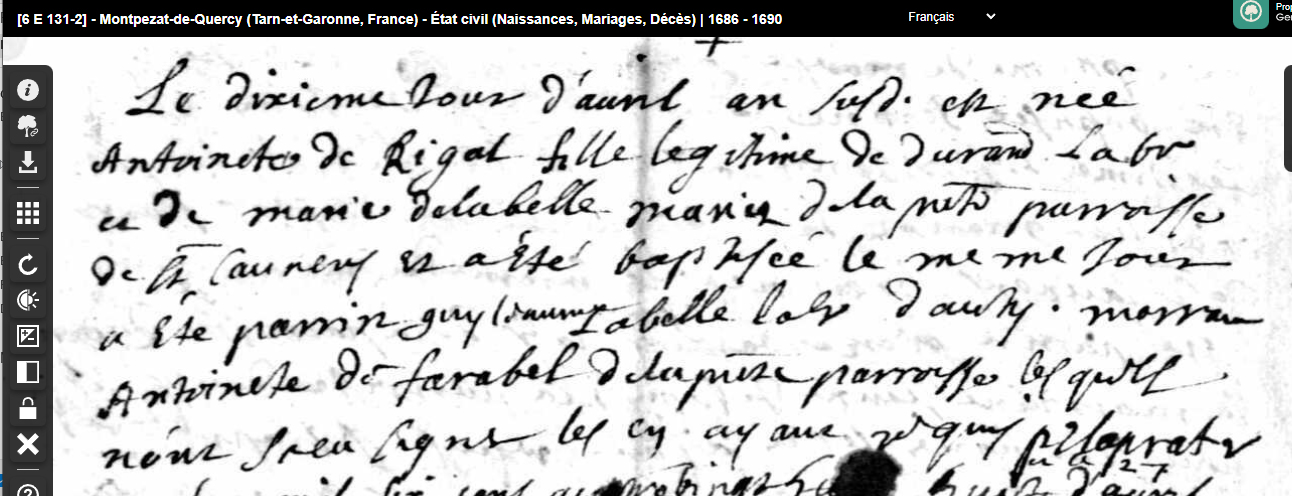 [6 E 131-2] - Montpezat-de-Quercy (Tarn-et-Garonne, France) - État civil (Naissances, Mariages, Décès) | 1686 - 1690
Français
Le dixieme Jour d'auril an susd. est née
Antoinete de Rigal fille legitime de durand Labr
et de marie delabelle mariez dela pnte parroisse
de st et a été baptisée le meme Jour
a été parrin guy Labelle labr d'auty. marraine
Antoinete de farabel dela pnte parroisse lesquels
n'ont sceu signer